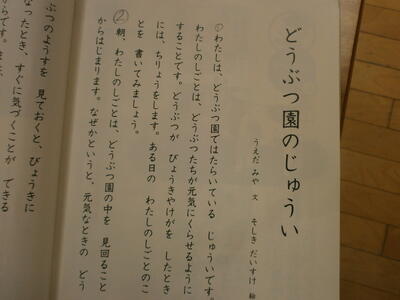 どうぶつ園のじゅうい
うえだ みや 文 そしき だいすけ 絵
①わたしは、どうぶつ園ではたらいている じゅういです。
わたしのしごとは、どうぶつたちが元気にくらせるように
することです。どうぶつが びょうきやけがを したとき
には、ちりょうをします。ある日の わたしのしごとのこ
とを 書いてみましょう。
②朝、わたしのしごとは、どうぶつ園の中を 見回ること
からはじまります。なぜかというと、元気なときの どう
ぶつのようすを 見ておくと、びょうきに
なったとき、すぐに気づくことが できる
からです。